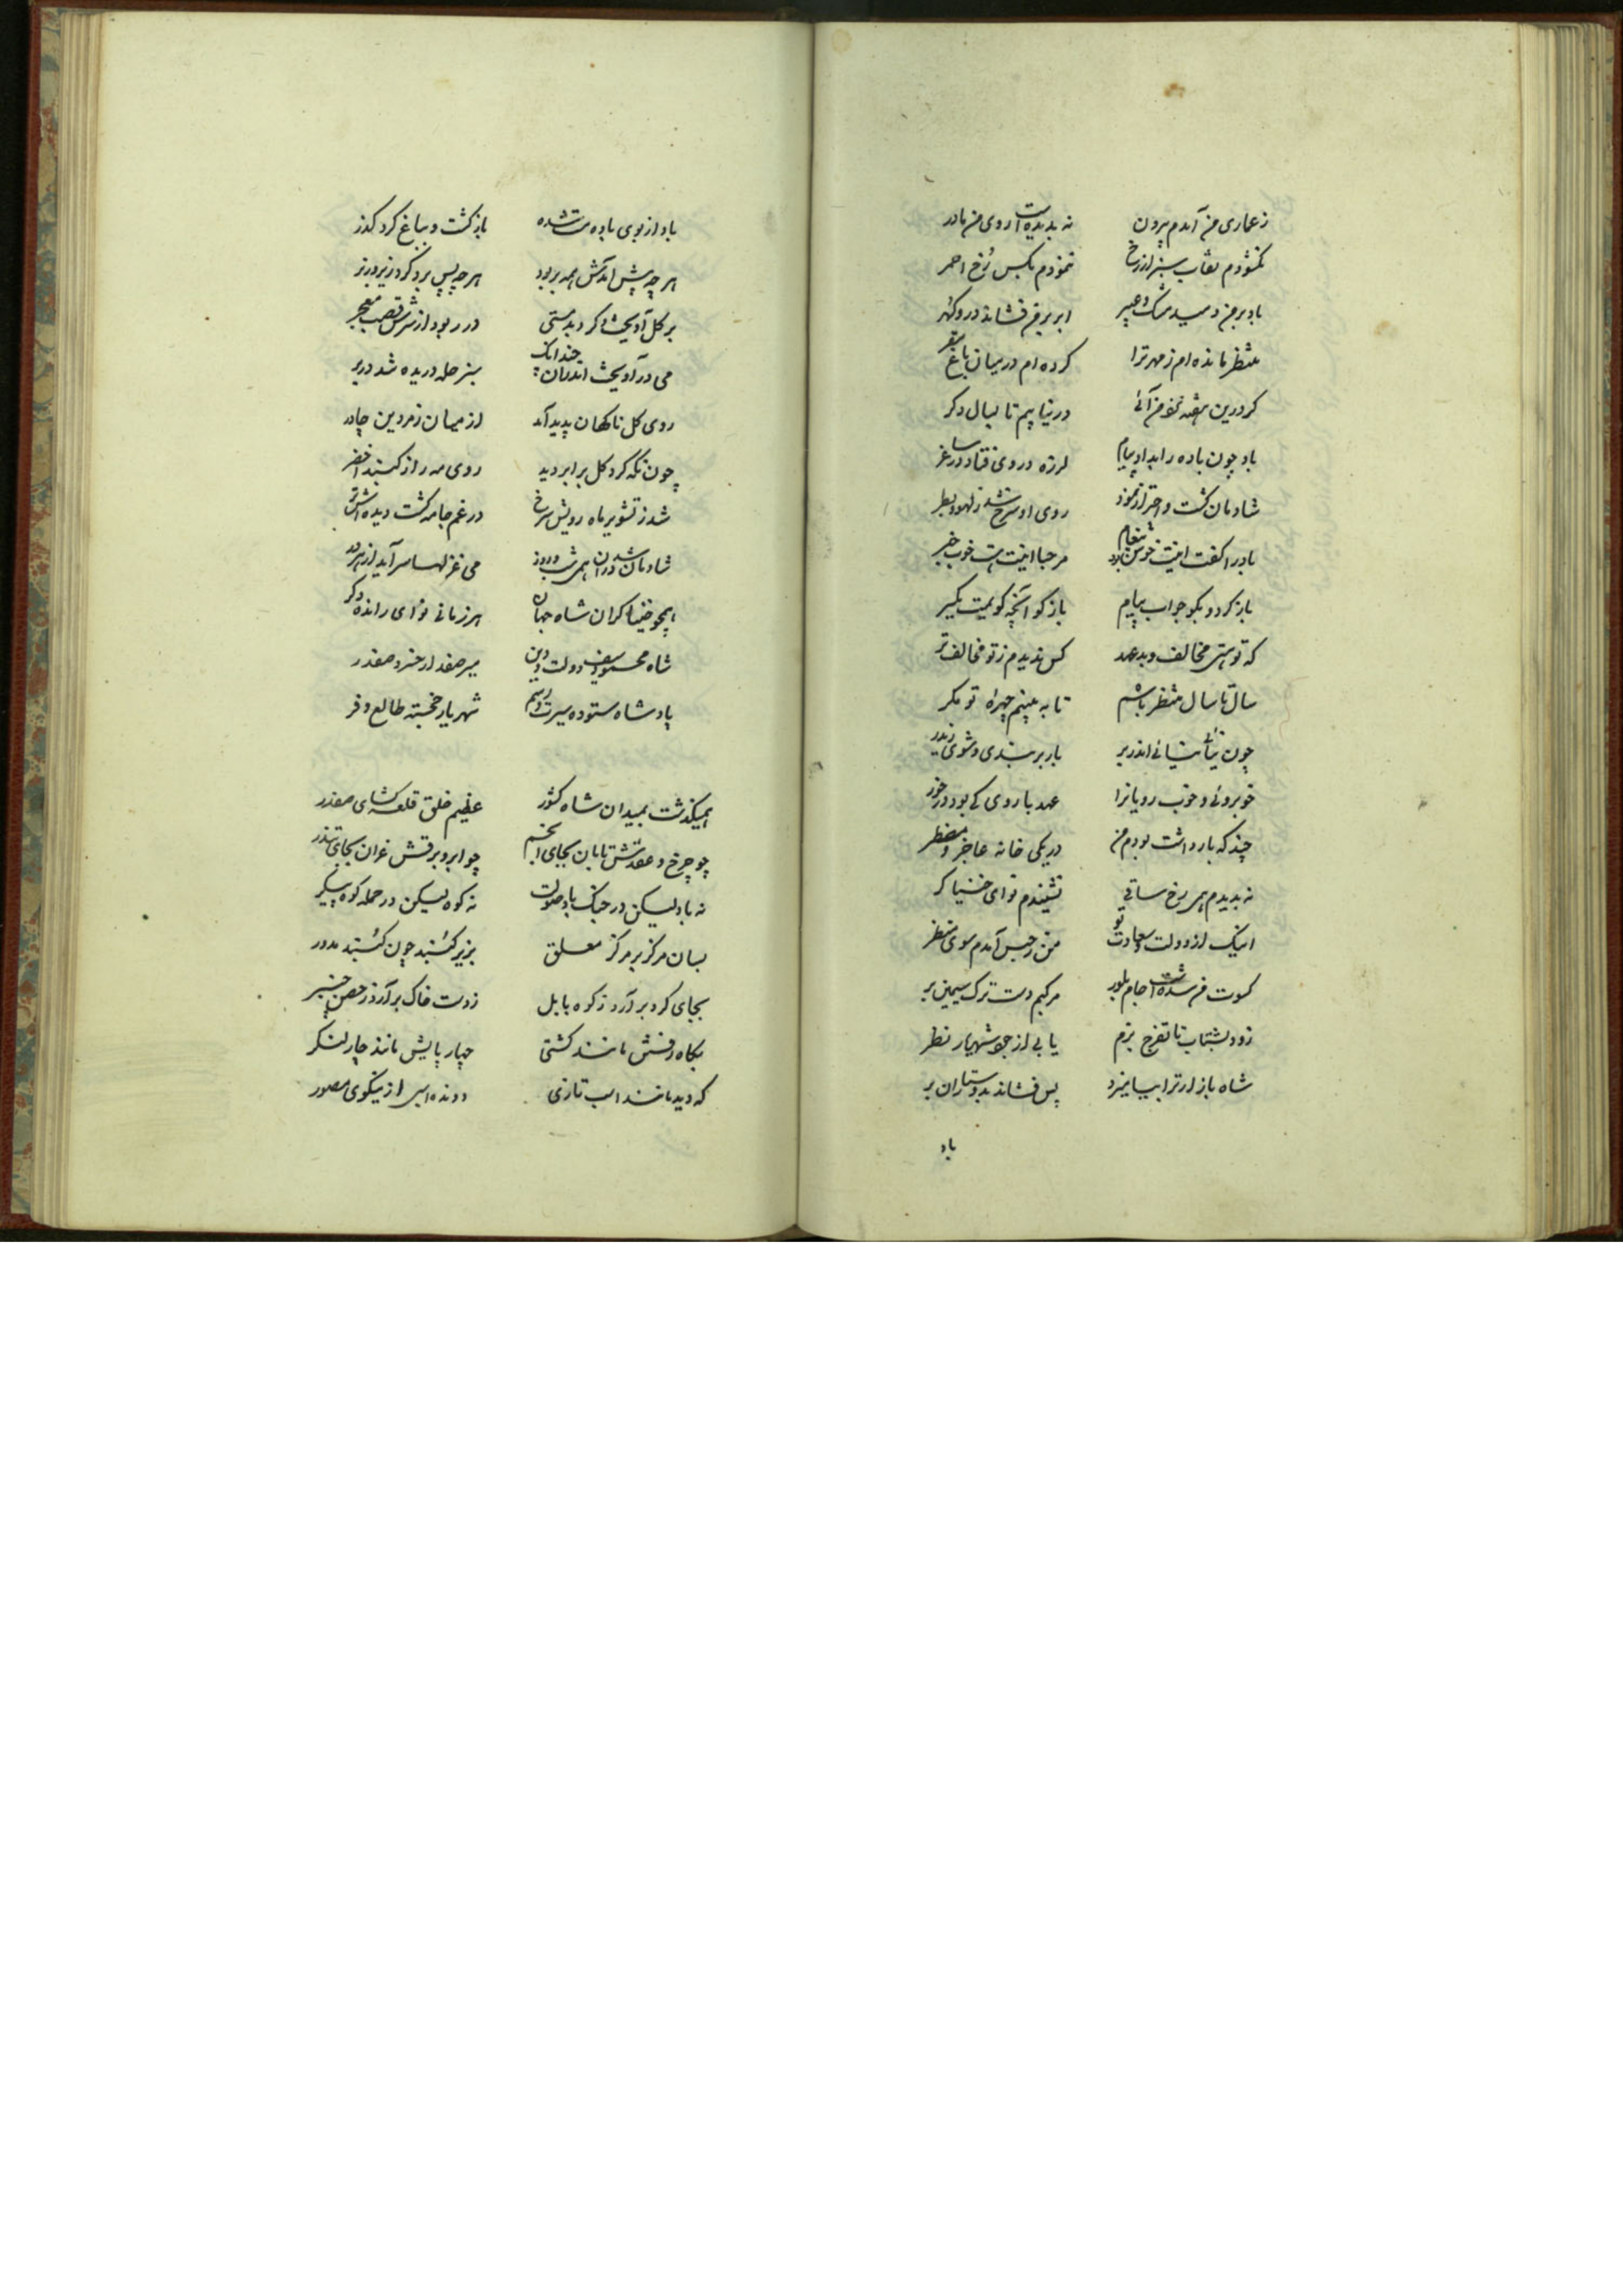 ز عماری من آمدم بیرون نه بدیده است روی من مادر
نگشودم نقاب سبز از رخ ننمودم بکس رخ احمر
باد بر من دمید مشک و عبیر ابر بر من فشاند در و گهر
منتظر مانده ام ز مهر ترا کرده ام در میان باغ مقر
گر درین هفته نزد من آئی در نیابیم تا بسال دگر
باد چون باده را بداد پیام لرزه در وی فتاد در ساغر
شادمان گشت و اهتزاز نمود روی او سرخ شد ز لهو و بطر
باد را گفت اینت خوش پیغام مرحبا اینت خوب خبر
باز گرد و بگو جواب پیام باز گو آنچه گویمت یکسر
که تو هستی مخالف و بد عهد کس ندیدم ز تو مخالف تر
سال تا سال منتظر باشم تا به بینم چهره تو مگر
چون بیائی نپائی اندر بر بار بر بندی و شوی زیدر
خوبروئی و خوب رویانرا عهد با روی کی بود در خور
چند گه باز داشت بودم من در یکی خانه عاجز و مضطر
نه بدیدم همی رخ ساقی نشنیدم نوای خنیاگر
اینک از دولت و سعادت تو من ز حبس آمدم سوی منظر
کسوت من شده است جام بلور مرکبم دست ترک سیمین بر
زود بشتاب تا تفرج بزم یابی از جود شهریار نظر
شاه باز ار ترا بیامیزد پس فشاند بدوستاران بر
باد
باد از بوی باده مست شده باز گشت و بباغ کرد گذر
هر چه پیش آمدش همه بربود هر چه پس برد کرد زیر و زبر
بر گل آویخت کرد بدمستی در ربود از سرش قصب معجر
می در آویخت اندران چندانک سبز حله دریده شد در بر
روی گل ناگهان پدید آمد از میان زمردین چادر
چون نگه کرد گل برابر دید روی مه را ز گنبد اخضر
شد ز تشویر ماه رویش سرخ در غم جامه گشت دیده اش تر
شادمان شد در آن همی شب و روز می غزلها سراید از هر در
همچو خنیاگران شاه جهان هر زمانی نوای رانده دگر
شاه محمود سیف دولت و دین میر صفدار خسرو صفدر
پادشاه ستوده سیرت و رسم شهریار خجسته طالع و فر
همیگذشت بمیدان شاه کشور عظیم خلق قلعه گشای صفدر
چو چرخ و عقدش تابان بجای انجم چو ابر و برقش غران بجای تندر
نه باد لیکن در جنگ باد صولت نه کوه لیکن در حمله کوه پیکر
بسان مرکز بر مرکز معلق بزیر گنبد چون گنبد مدور
بجای گرد بر آرد ز کوه بابل ز دست خاک بر آرد ز حصن خیبر
بگاه رفتنش مانند کشتی چهار پایش مانند چار لنگر
که دید مانند اسب تازی دونده از نیکوی مصور